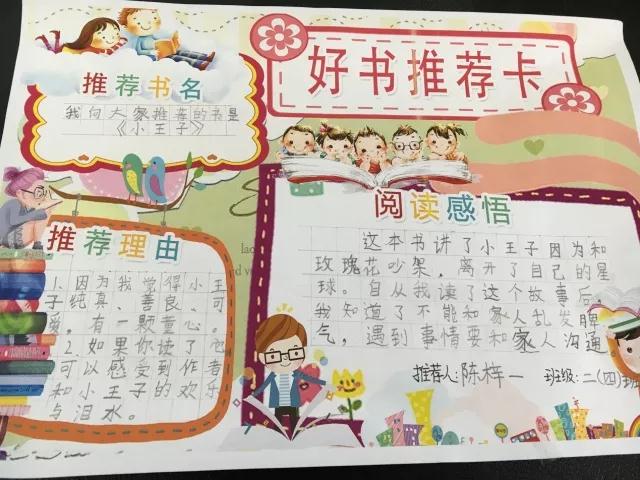 好书推荐卡
推荐书名
我向大家推荐的书是
《小王子》
推荐理由
1.因为我觉得小王
子纯真、善良、可
爱。有一颗童心。
2.如果你读了它
可以感受到作者
和小王子的欢乐
与泪水。
阅读感悟
这本书讲了小王子因为和
玫瑰花吵架，离开了自己的星
球。自从我读了这个故事后，
我知道了不能和家人乱发脾
气，遇到事情要和家人沟通
推荐人:陈梓一 班级:二(四)班